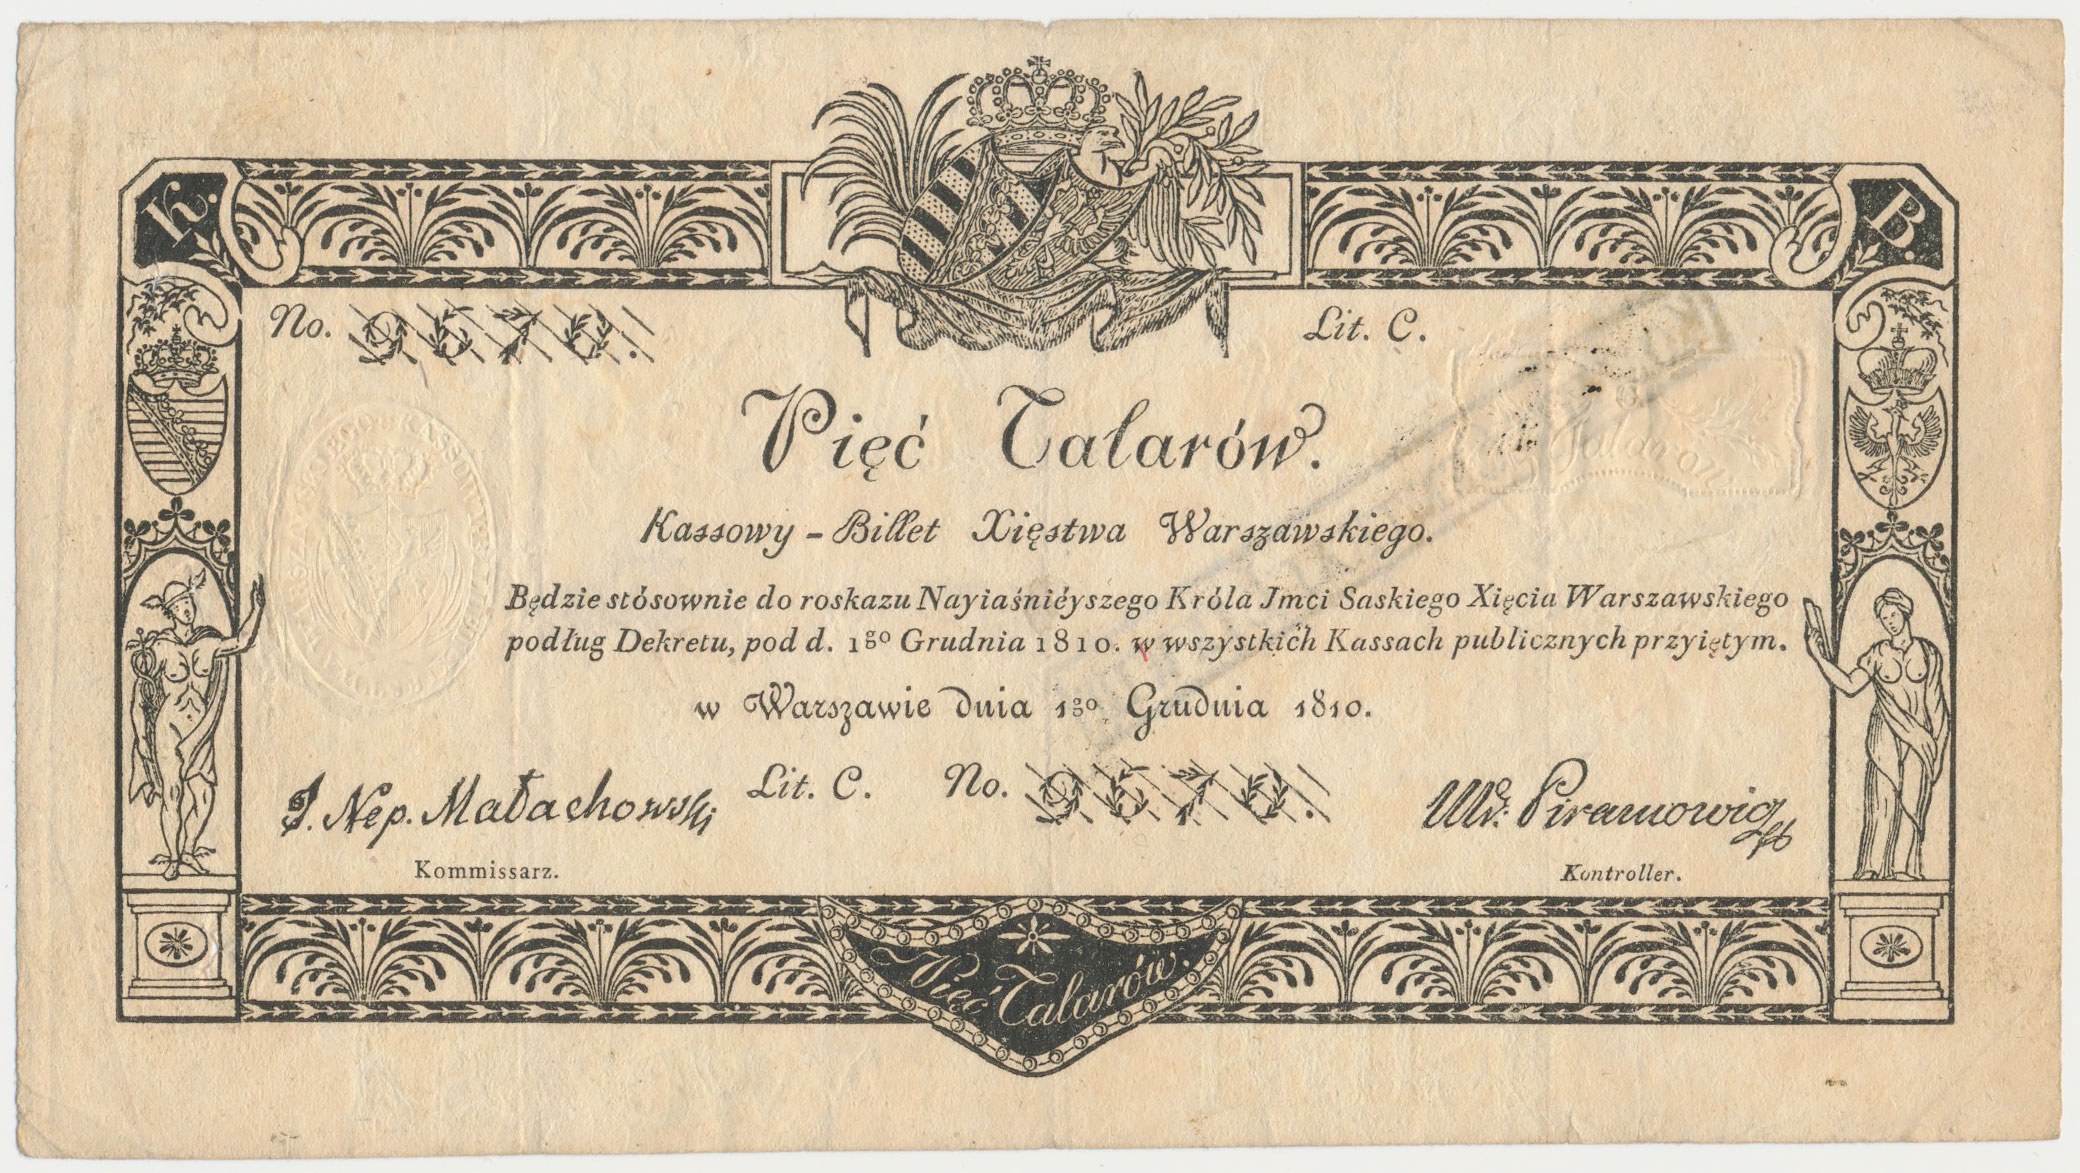 K.
B.
No. 9676.
Lit. C.
Pięć Talarów.
Talarów
Kassowy - Billet Xięstwa Warszawskiego.
Będzie stósownie do roskazu Nayiaśniéyszego Króla Jmci Saskiego Xięcia Warszawskiego
podług Dekretu, pod d. 1go Grudnia 1810. w wszystkich Kassach publicznych przyiętym.
w Warszawie dnia 1go Grudnia 1810.
Lit. C. No. 9676.
J. Nep. Małachowski
Wł: Piramowicz
Kommissarz.
Kontroller.
Pięć Talarów.